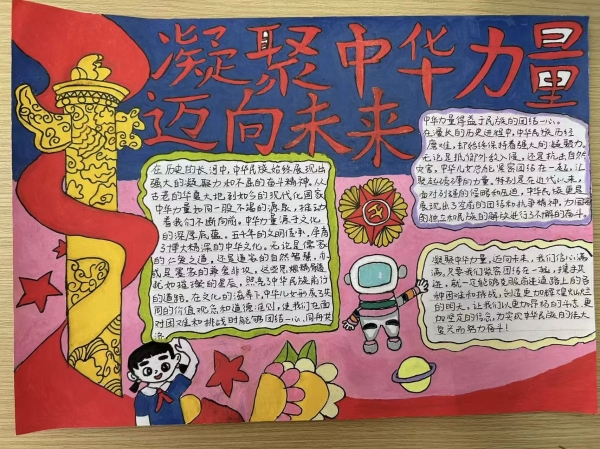 凝聚中华力量
迈向未来
在历史的长河中,中华民族始终展现出
强大的凝聚力和不屈的奋斗精神。从
古老的华夏大地到如今的现代化国家
中华力量如同一股不竭的源泉,推动
着我们不断向前。中华力量源于文化
的深厚底蕴。五千年的文明传承,孕育
了博大精深的中华文化。无论是儒家
的仁爱之道,还是道家的自然智慧,亦
或是墨家的兼爱非攻,这些思想精髓
犹如璀璨的星辰,照亮了中华民族前行
的道路。在文化的滋养下,中华儿女形成了共
同的价值观念和道德准则,使我们在面
对困难和挑战时能够团结一心、同舟共
济
中华力量得益于民族的团结一心。
在漫长的历史进程中,中华民族历经
磨难,却始终保持着强大的凝聚力。
无论是抵御外敌入侵,还是抗击自然
灾害,中华儿女总能紧密团结在一起,汇
聚起磅礴的力量。特别是在近代以来,
面对列强的侵略和压迫,中华民族更是
展现出了空前的团结和抗争精神,为国家
的独立和民族的解放进行了不懈的奋斗。
凝聚中华力量,迈向未来,我们信心满
满。只要我们紧密团结在一起,携手共
进,就一定能够克服前进道路上的各
种困难和挑战,创造更加辉煌灿烂
的明天。让我们以更加昂扬的斗志、更
加坚定的信念,为实现中华民族的伟大
复兴而努力奋斗!